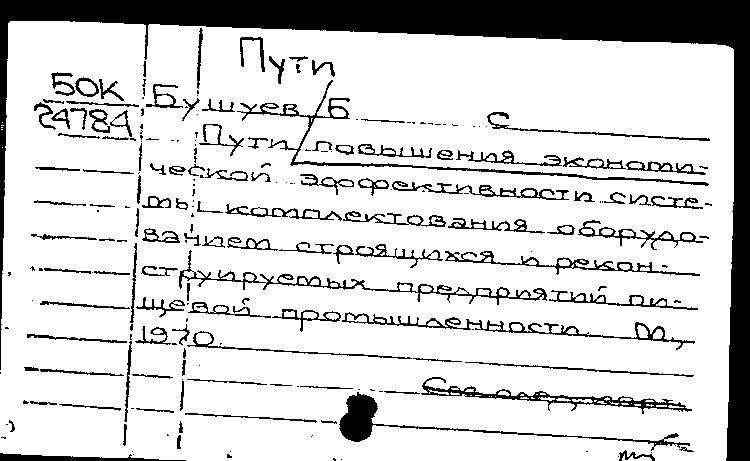 Пути
БОК
24784
Бушуев, Б С
Пути повышения экономи-
ческой эффективности систе-
мы комплектования оборудо-
ванием строящихся и рекон-
струируемых предприятий пи-
щевой промышленности. М.,
1970.
См. след. карт.